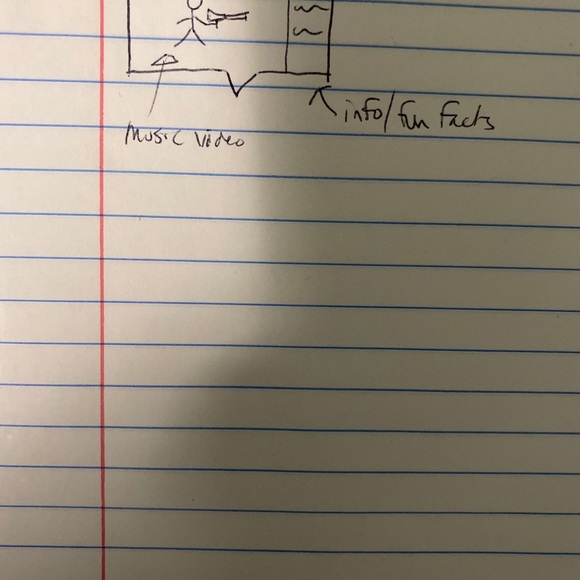 info/fun facts
music video